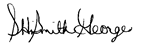 SHSmith George